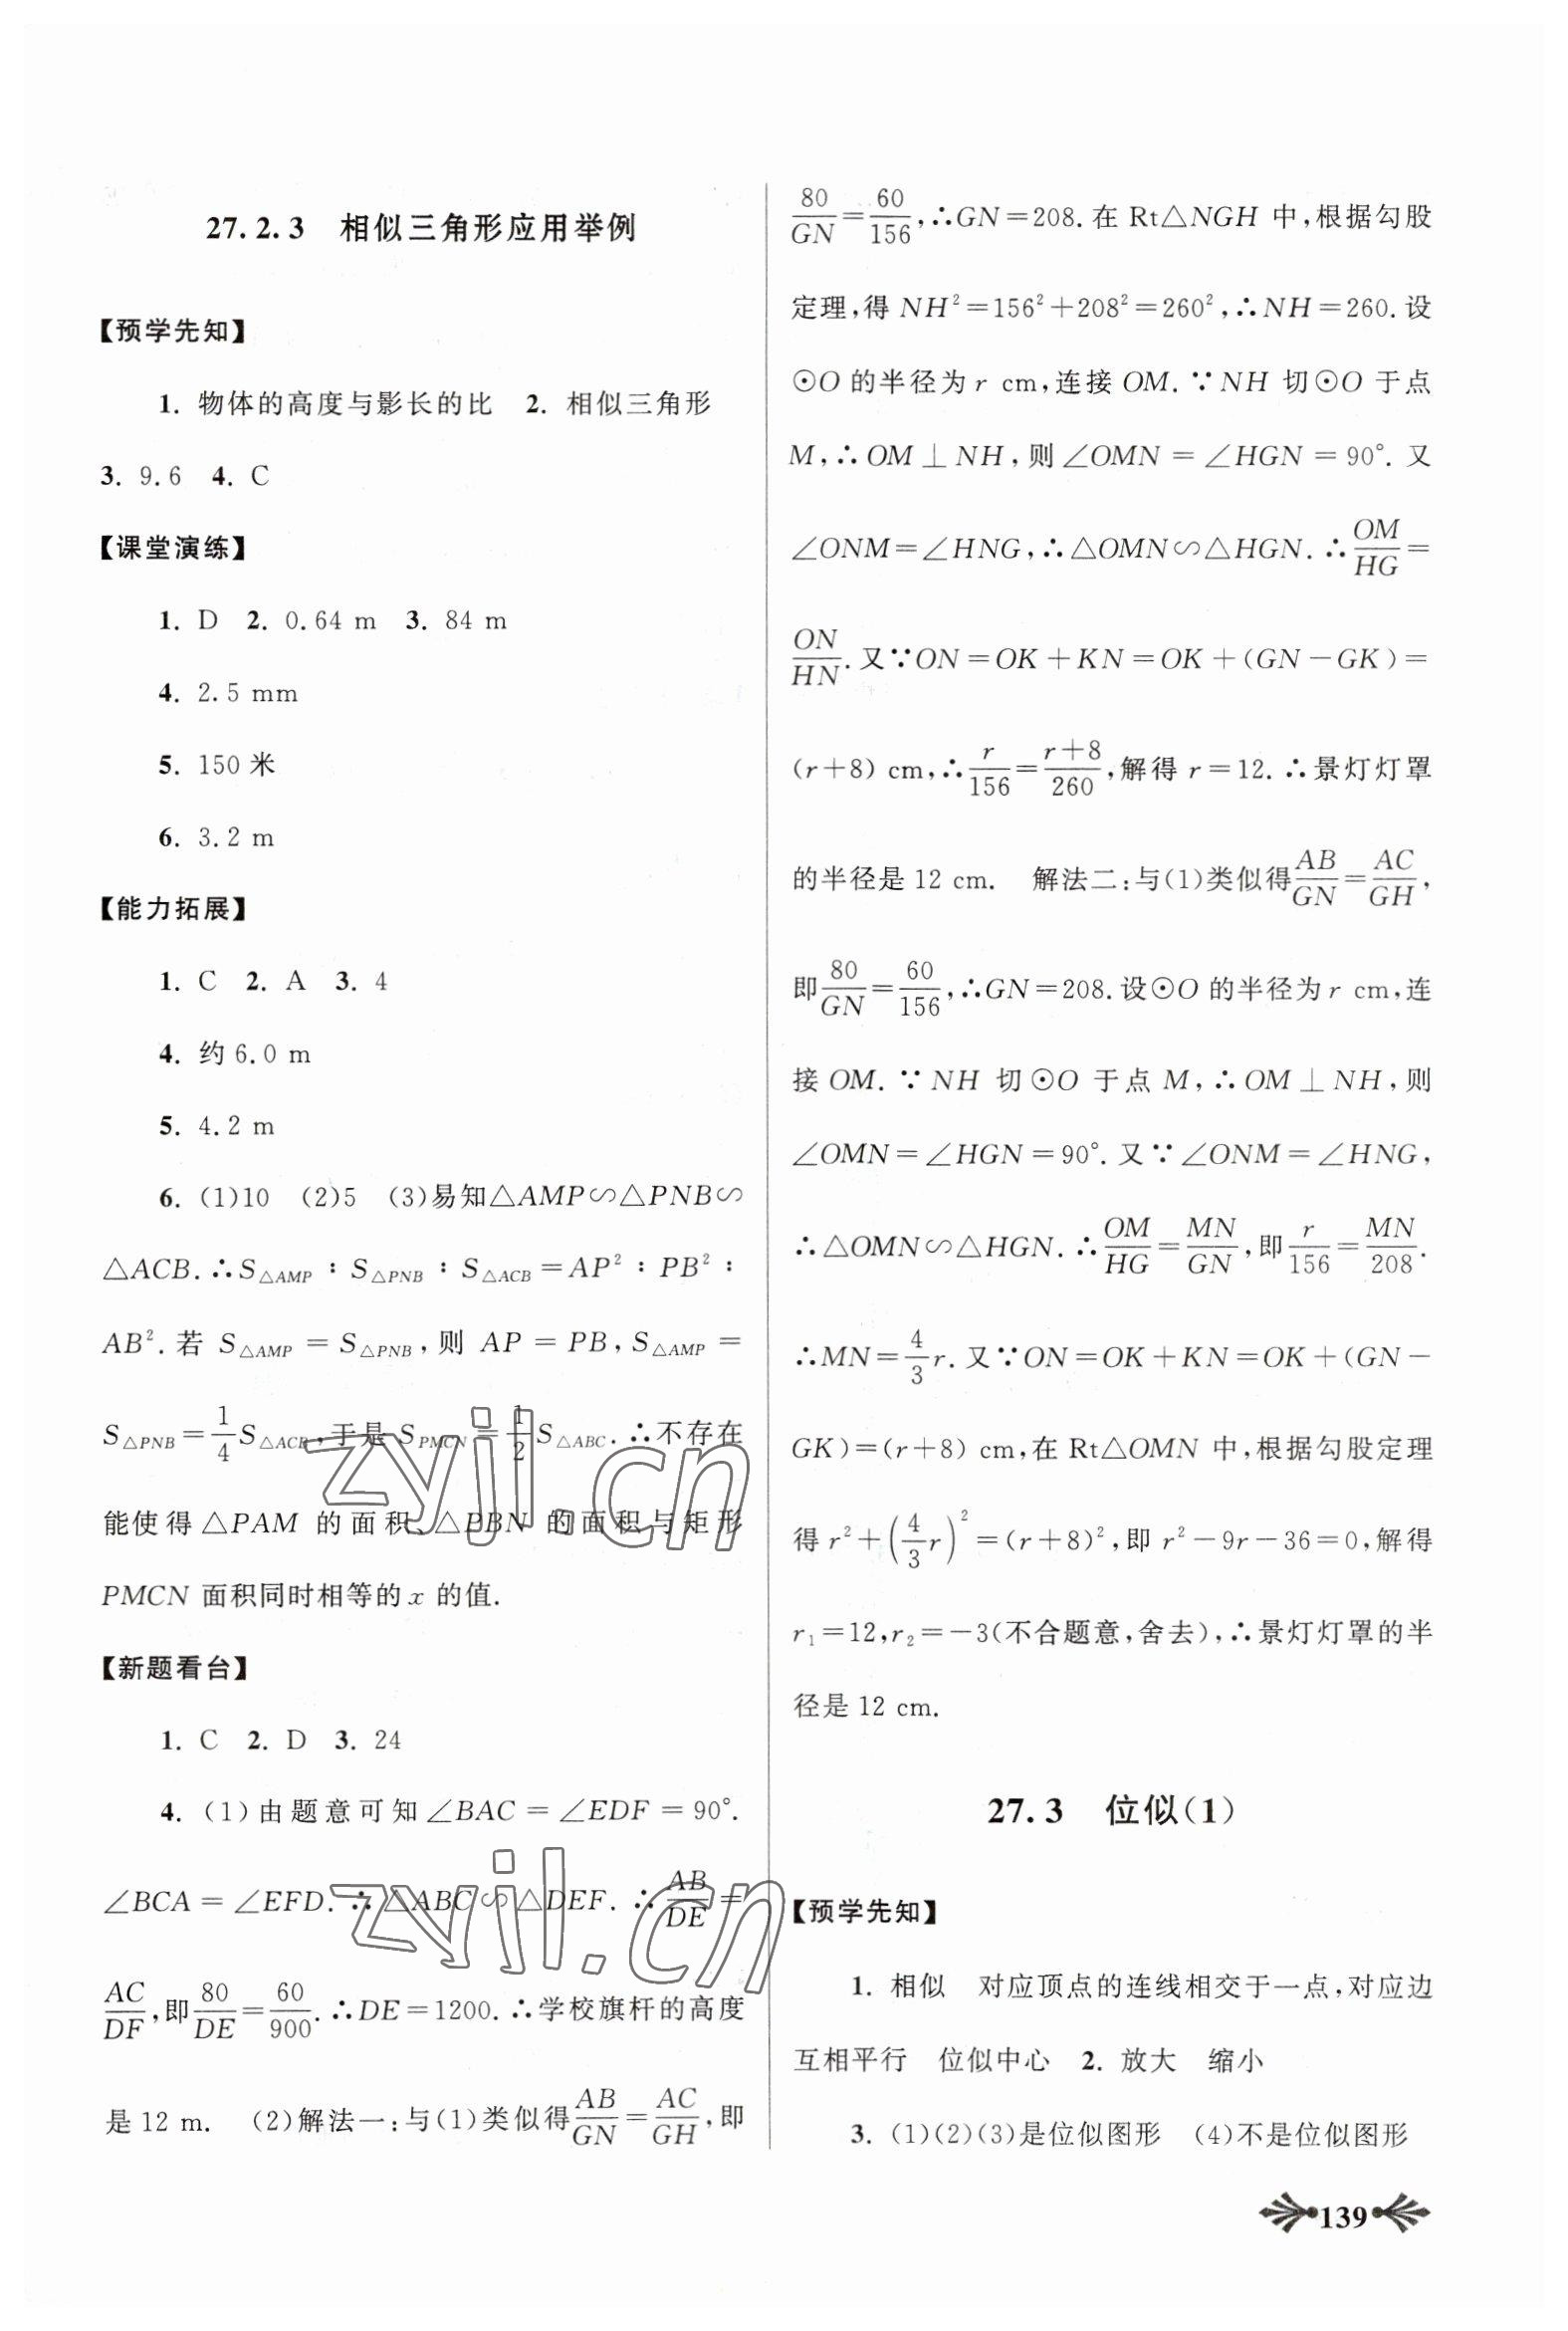 27.2.3 相似三角形应用举例
【预学先知】
1. 物体的高度与影长的比 2. 相似三角形
3. 9.6 4. C
【课堂演练】
1. D 2. 0.64 m 3. 84 m
4. 2.5 mm
5. 150 米
6. 3.2 m
【能力拓展】
1. C 2. A 3. 4
4. 约 6.0 m
5. 4.2 m
6. (1)10 (2)5 (3)易知△AMP∽△PNB∽
△ACB. ∴S△AMP : S△PNB : S△ACB = AP² : PB² :
AB². 若 S△AMP = S△PNB, 则 AP = PB, S△AMP =
S△PNB = 1/4 S△ACB, 于是 SPMCN = 1/2 S△ABC. ∴不存在
能使得 △PAM 的面积、△PBN 的面积与矩形
PMCN 面积同时相等的 x 的值.
【新题看台】
1. C 2. D 3. 24
4. (1)由题意可知∠BAC = ∠EDF = 90°.
∠BCA = ∠EFD. ∴△ABC∽△DEF. ∴AB/DE =
AC/DF, 即80/DE = 60/900. ∴DE = 1200. ∴学校旗杆的高度
是 12 m. (2)解法一:与(1)类似得AB/GN = AC/GH, 即
80/GN = 60/156, ∴GN = 208. 在 Rt△NGH 中, 根据勾股
定理, 得 NH² = 156² + 208² = 260², ∴NH = 260. 设
⊙O 的半径为 r cm, 连接 OM. ∵NH 切⊙O 于点
M, ∴OM⊥NH, 则∠OMN = ∠HGN = 90°. 又
∠ONM = ∠HNG, ∴△OMN∽△HGN. ∴OM/HG =
ON/HN. 又∵ON = OK + KN = OK + (GN - GK) =
(r+8) cm, ∴r/156 = (r+8)/260, 解得 r = 12. ∴景灯灯罩
的半径是 12 cm. 解法二:与(1)类似得AB/GN = AC/GH,
即80/GN = 60/156, ∴GN = 208. 设⊙O 的半径为 r cm, 连
接 OM. ∵NH 切⊙O 于点 M, ∴OM⊥NH, 则
∠OMN = ∠HGN = 90°. 又∵∠ONM = ∠HNG,
∴△OMN∽△HGN. ∴OM/HG = MN/GN, 即r/156 = MN/208.
∴MN = 4/3 r. 又∵ON = OK + KN = OK + (GN -
GK) = (r+8) cm, 在 Rt△OMN 中, 根据勾股定理
得 r² + (4/3 r)² = (r+8)², 即 r² - 9r - 36 = 0, 解得
r₁ = 12, r₂ = -3(不合题意, 舍去), ∴景灯灯罩的半
径是 12 cm.
27.3 位似(1)
【预学先知】
1. 相似 对应顶点的连线相交于一点, 对应边
互相平行 位似中心 2. 放大 缩小
3. (1)(2)(3)是位似图形 (4)不是位似图形
139
zyjl.cn
zyjl.cn